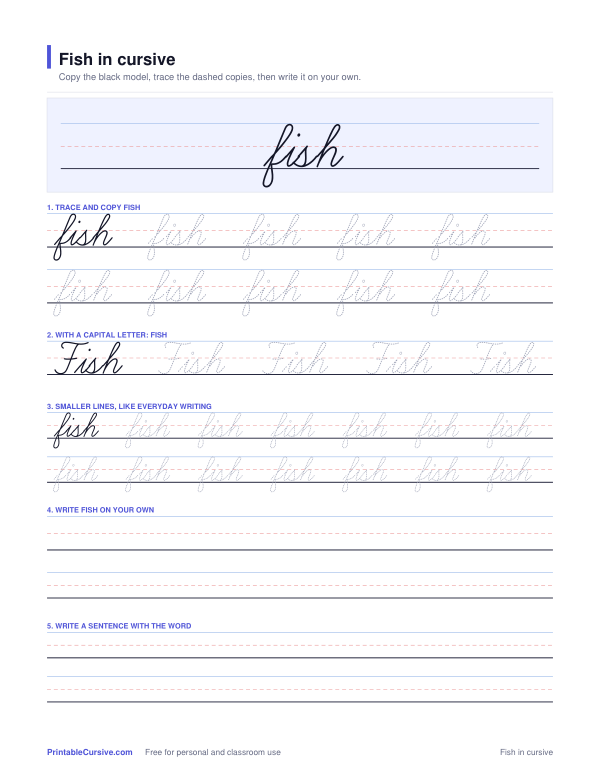 Fish in cursive
Copy the black model, trace the dashed copies, then write it on your own.
fish
1. TRACE AND COPY FISH
fish fish fish fish fish
fish fish fish fish fish
2. WITH A CAPITAL LETTER: FISH
Fish Fish Fish Fish Fish
3. SMALLER LINES, LIKE EVERYDAY WRITING
fish fish fish fish fish fish fish
fish fish fish fish fish fish fish
4. WRITE FISH ON YOUR OWN
5. WRITE A SENTENCE WITH THE WORD
PrintableCursive.com Free for personal and classroom use Fish in cursive